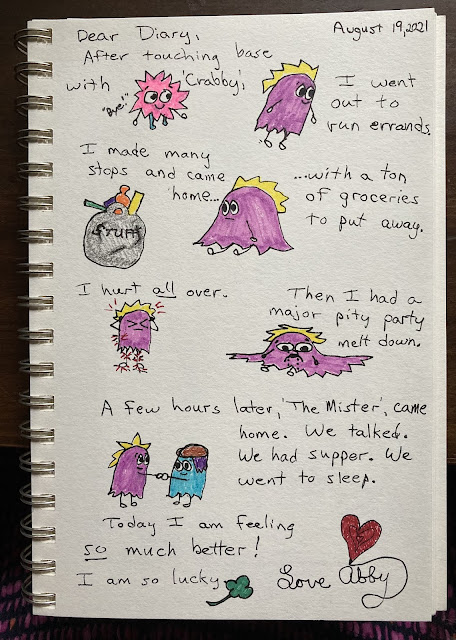 August 19, 2021
Dear Diary,
After touching base
with 'Crabby',
"Bye!"
I went
out to
run errands
I made many
stops and came
home...
...with a ton
of groceries
to put away.
fruit
I hurt all over.
Then I had a
major pity party
melt down.
A few hours later, 'The Mister', came
home. We talked.
We had supper. We
went to sleep.
Today I am feeling
so much better!
I am so lucky
Love Abby